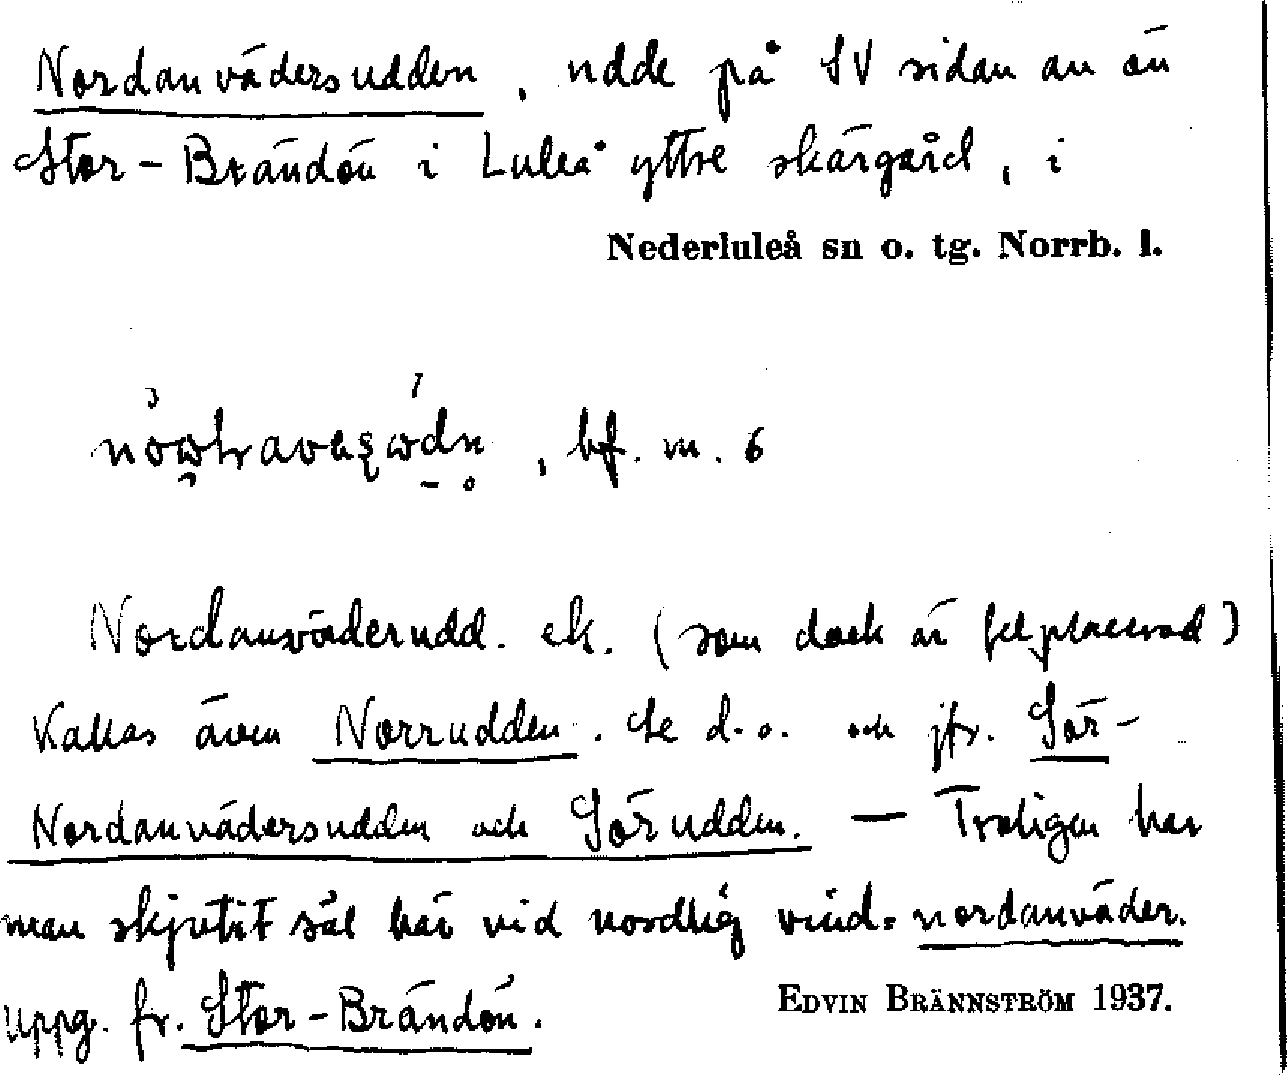 Nordanvädersudden, udde på SV sidan av ön
Stor-Brändön i Luleå yttre skärgård, i
Nederluleå sn o. tg. Norrb. l.
, bf. m. 6
Nordanväderudd. ek. (som dock är felplacerad)
Kallas även Norrudden. Se d.o. och jfr. Sör-
Nordanvädersudden och Sörudden. — Troligen har
man skjutit säl här vid nordlig vind = nordanväder.
Uppg. fr. Stor-Brändön.
EDVIN BRÄNNSTRÖM 1937.